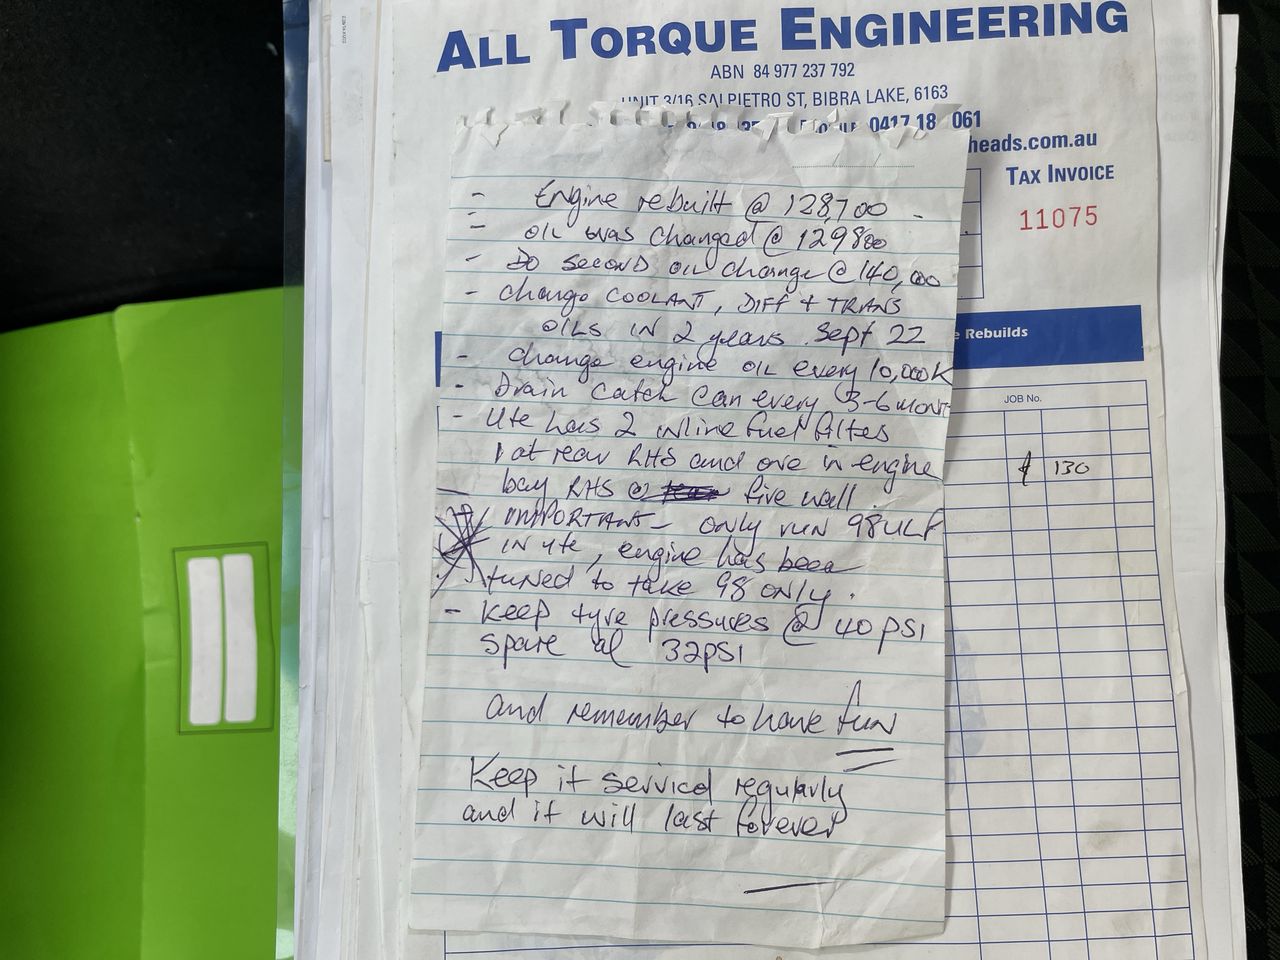 ALL TORQUE ENGINEERING
ABN 84 977 237 792
UNIT 3/16 SALPIETRO ST, BIBRA LAKE, 6163
0417 18 061
heads.com.au
TAX INVOICE
11075
e Rebuilds
JOB No.
$ 130
- Engine rebuilt @ 128,700 -
- OIL was changed @ 129800
- DO SECOND OIL change @ 140,000
- change COOLANT, DIFF + TRANS
OILS IN 2 years. Sept 22
- change engine OIL every 10,000K
- Drain Catch Can every 3-6 MONT
- Ute has 2 inline fuel filtes
1 at rear RHS and one in engine
bay RHS @ fire wall.
IMPORTANT - only run 98 ULP
IN ute, engine has been
tuned to take 98 only.
- Keep tyre pressures @ 40 PSI
Spare at 32psi
and remember to have fun
Keep it serviced regularly
and it will last forever